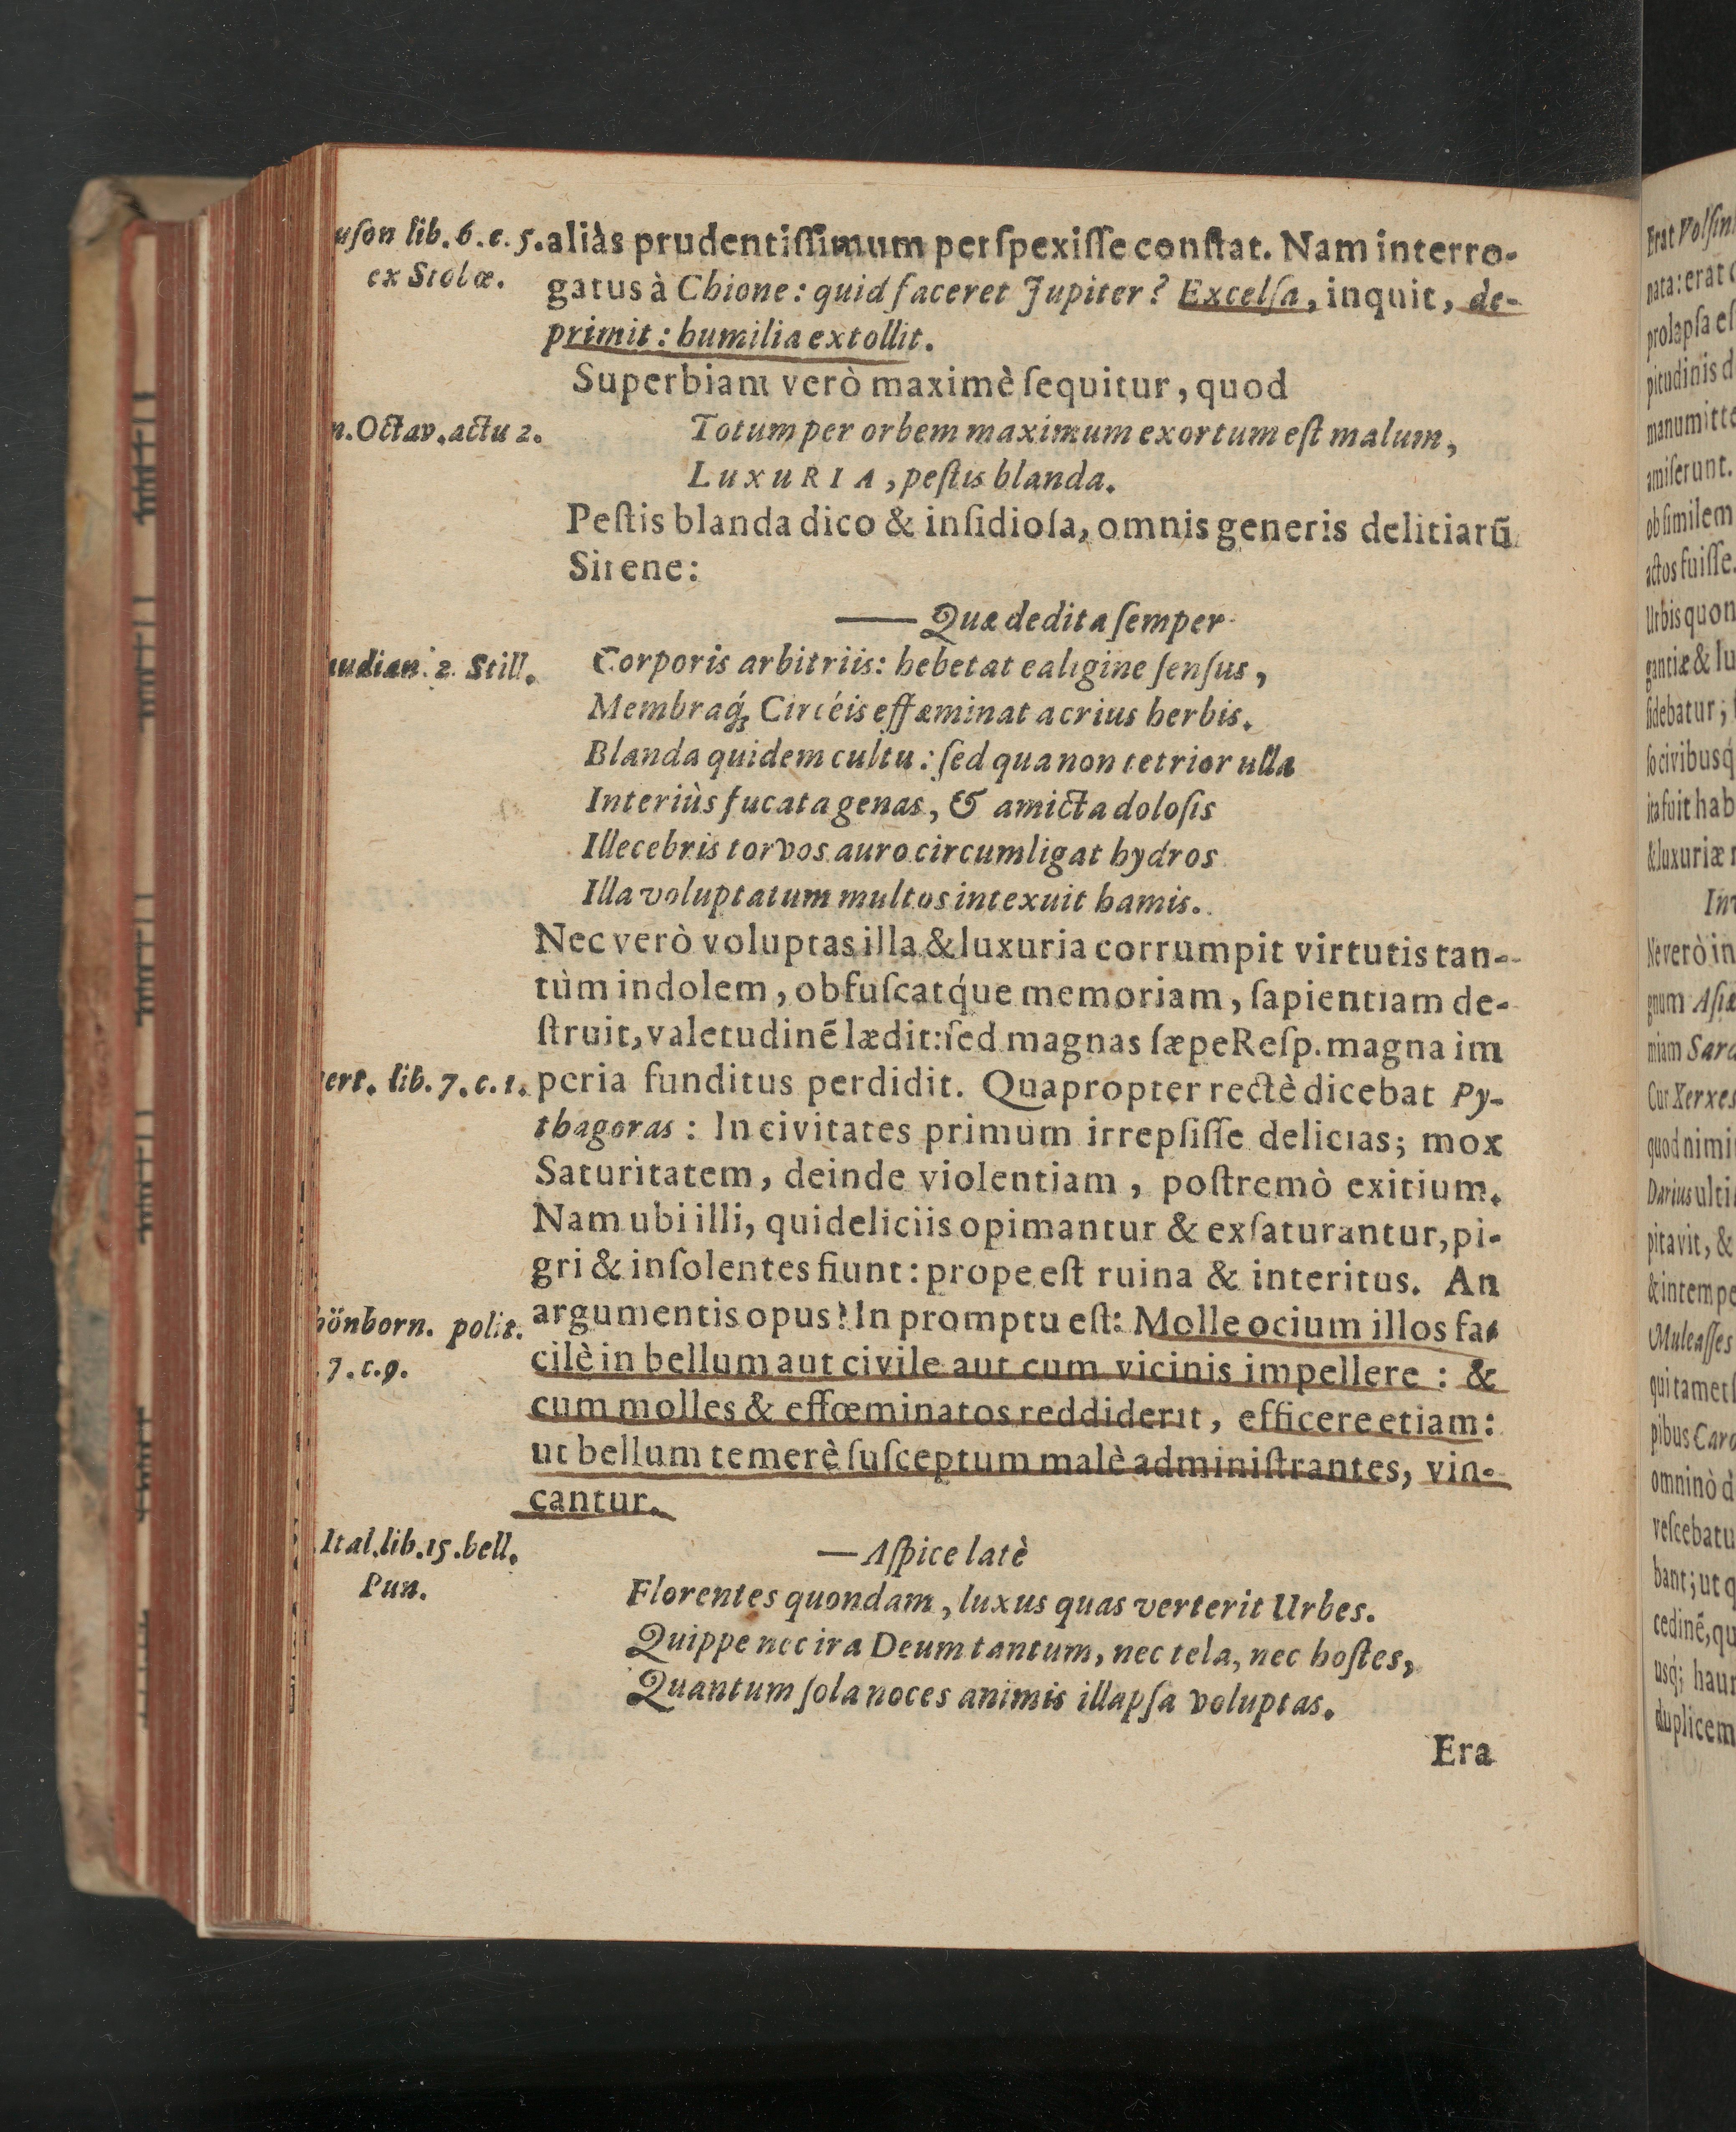 uſon lib. 6. c. 5.
ex Stobæ.
aliàs prudentiſſimum perſpexiſſe conſtat. Nam interro-
gatus à Chione: quid faceret Jupiter? Excelſa, inquit, de-
primit: humilia extollit.
Superbiam verò maximè ſequitur, quod
n. Octav. actu 2.
Totum per orbem maximum exortum eſt malum,
LuxuRIA, peſtis blanda.
Peſtis blanda dico & inſidioſa, omnis generis delitiarũ
Sirene:
—— Quæ dedita ſemper
udian. 2. Still.
Corporis arbitriis: hebetat ealigine ſenſus,
Membraq́; Circéis effæminat acrius herbis.
Blanda quidem cultu: ſed qua non tetrior ulla
Interiùs fucata genas, & amicta doloſis
Illecebris torvos auro circumligat hydros
Illa voluptatum multos intexuit hamis.
Nec verò voluptas illa & luxuria corrumpit virtutis tan-
tùm indolem, obfuſcatq́ue memoriam, ſapientiam de-
ſtruit, valetudinẽ lædit: ſed magnas ſæpe Reſp. magna im
ert. lib. 7. c. 1.
peria funditus perdidit. Quapropter rectè dicebat Py-
thagoras: In civitates primum irrepſiſſe delicias; mox
Saturitatem, deinde violentiam, poſtremò exitium.
Nam ubi illi, qui deliciis opimantur & exſaturantur, pi-
gri & inſolentes fiunt: prope eſt ruina & interitus. An
hönborn. polit.
7. c. 9.
argumentis opus? In promptu eſt: Molle ocium illos fa-
cilè in bellum aut civile aut cum vicinis impellere: &
cum molles & effœminatos reddiderit, efficere etiam:
ut bellum temerè ſuſceptum malè adminiſtrantes, vin-
cantur.
Ital. lib. 15. bell.
Pun.
— Aſpice latè
Florentes quondam, luxus quas verterit Urbes.
Quippe nec ira Deum tantum, nec tela, nec hoſtes,
Quantum ſola noces animis illapſa voluptas.
Era
Erat Volſin
pata: erat
prolapſa eſ
pitudinis d
manumitte
amiſerunt.
ob ſimilem
actos fuiſſe.
Urbis quon
gantiæ & lu
ſidebatur;
ſo civibusq́
ita fuit hab
& luxuriæ
In
Ne verò in
gnum Aſiæ
miam Sard
Cur Xerxes
quod nimi
Darius ulti
pitavit, &
& intempe
Muleaſſes
qui tametſ
pibus Caro
omninò d
veſcebatu
bant; ut q
cedinẽ, qu
usq́; haur
duplicem